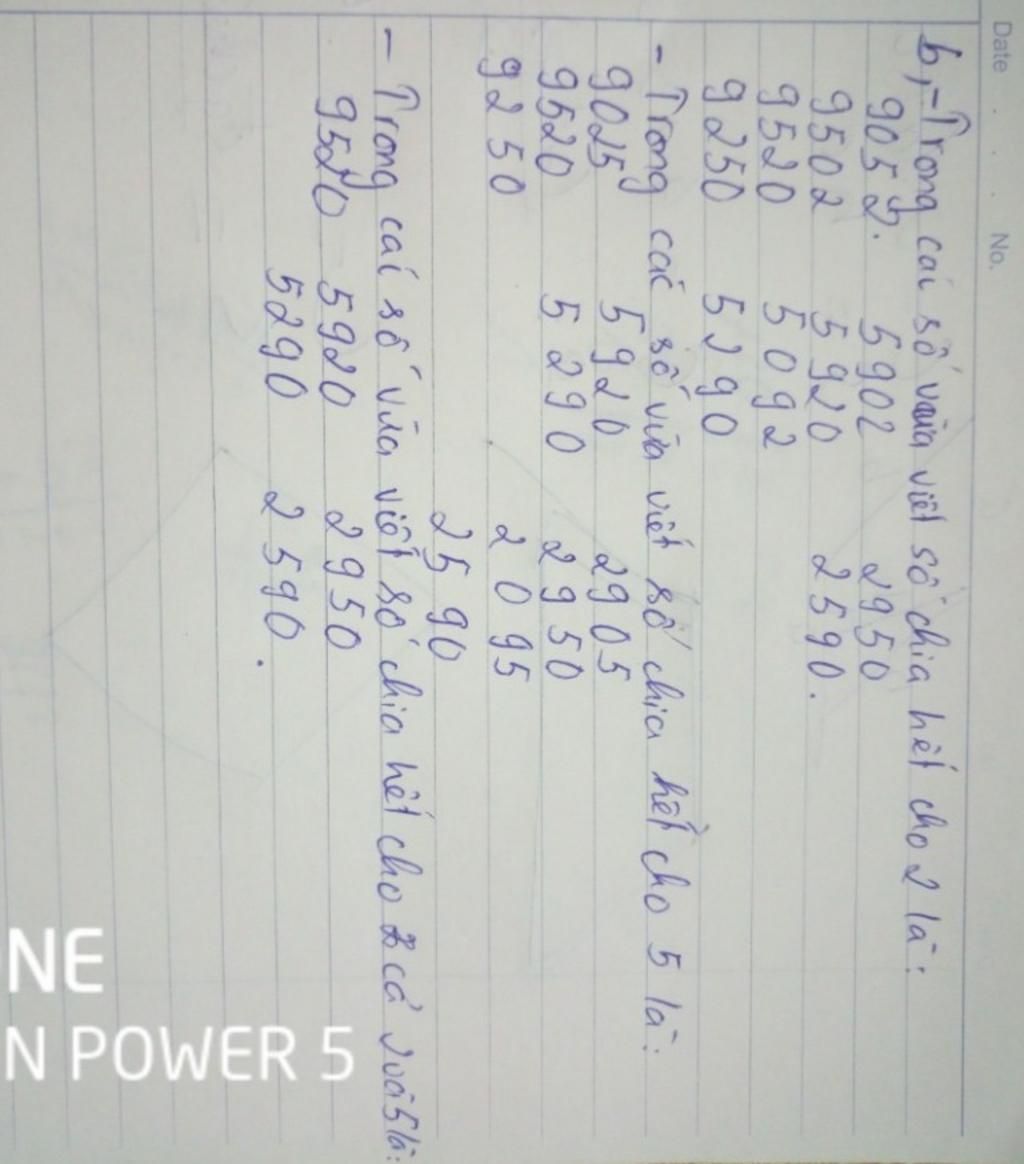 Date . . . No.
b, - Trong cái số vừa viết số chia hết cho 2 là:
9052. 5902 2950
9502 5920 2590.
9520 5092
9250 5290
- Trong các số vừa viết số chia hết cho 5 là:
9025 5920 2905
9520 5290 2950
9250 2095
2590
- Trong cái số vừa viết số chia hết cho cả 2 và 5 là:
9520 5920 2950
5290 2590.
NE
N POWER 5